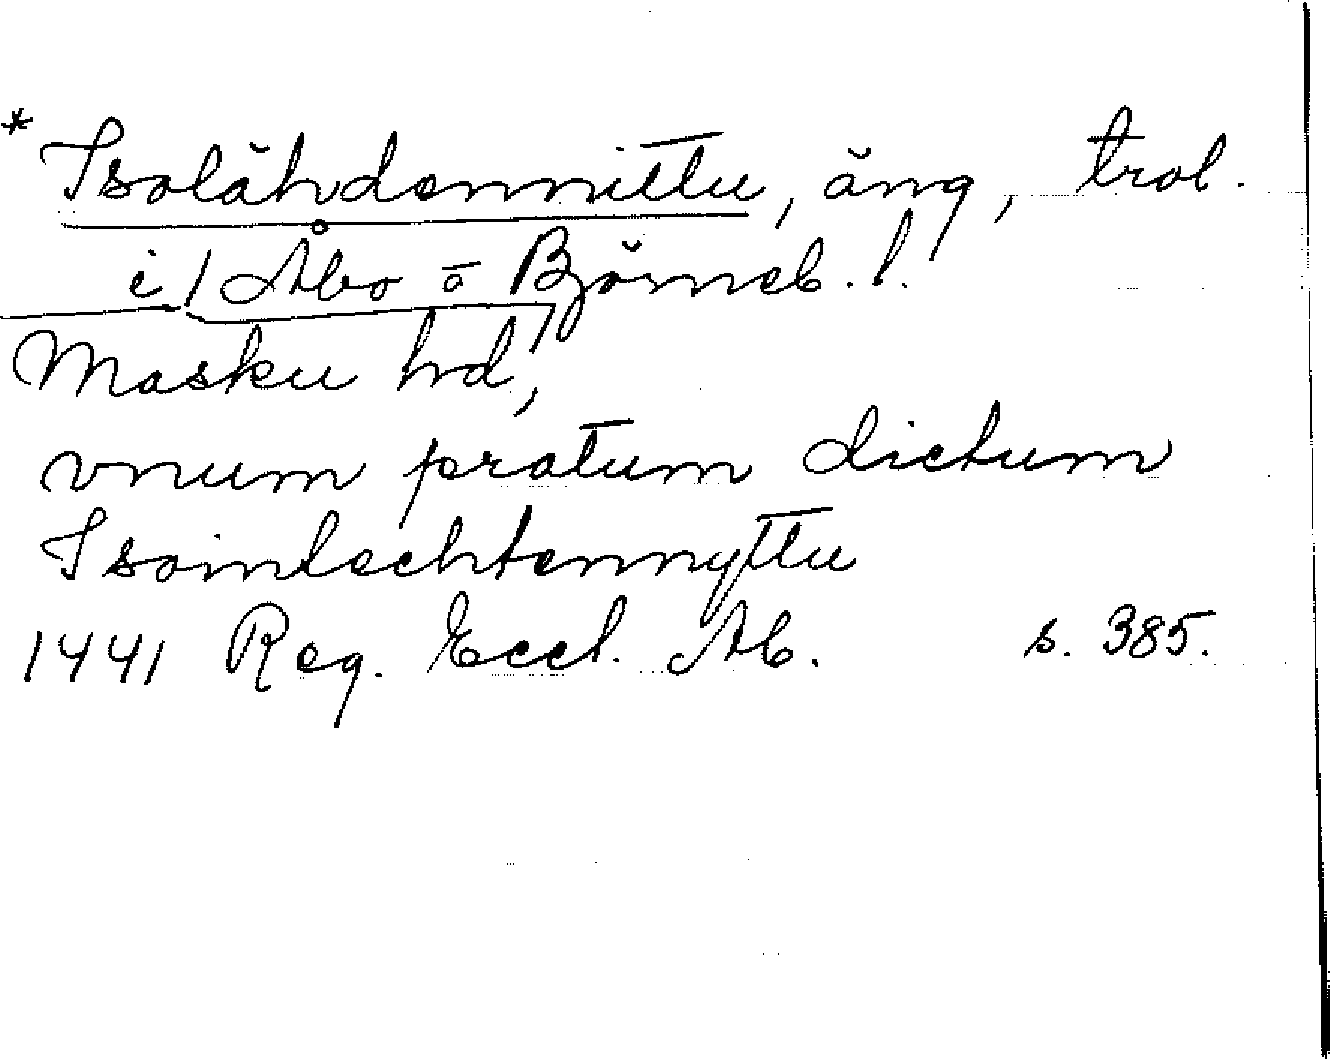 * Isolähdennittu, äng, trol.
i Åbo o Björneb. l.
Masku hd,
vnum pratum dictum
Isoinlechtennyttu
1441 Reg. Eccl. Ab. s. 385.